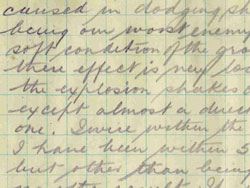 caused in dodging sh
being our worst enemy
soft condition of the gro
their effect is very loc
the explosion shakes o
except almost a direc
one. Twice within the
I have been within 5
but other than being